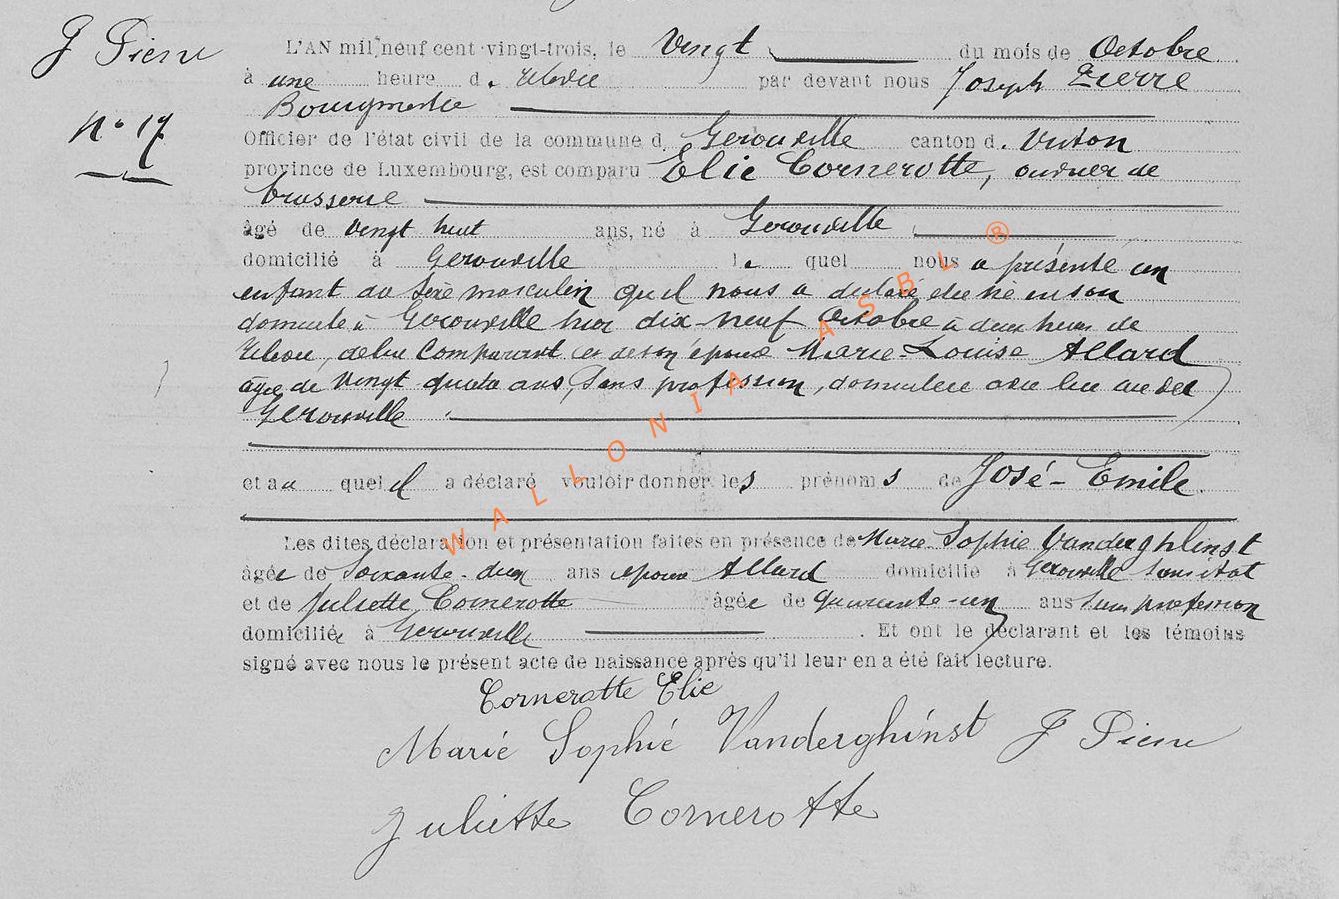 J Pierre
N° 17
L'AN mil neuf cent vingt-trois, le Vingt du mois de Octobre
à une heure d. relevée par devant nous Joseph Pierre
Bourgmestre
Officier de l'état civil de la commune d. Gérouville canton d. Virton
province de Luxembourg, est comparu Elie Cornerotte, ouvrier de
brasserie
âgé de vingt huit ans, né à Gerouville
domicilié à Gerouville le quel nous a présenté un
enfant du sexe masculin qu'il nous a déclaré être né en son
domicile à Gerouville hier dix-neuf Octobre à deux heures de
relevée, de lui comparant et de son épouse Marie-Louise Allard
âgée de vingt quatre ans, sans profession, domiciliée avec lui au dit
Gerouville
et au quel il a déclaré vouloir donner les prénoms de José-Emile
Les dites déclaration et présentation faites en présence de Marie Sophie Vanderghinst
âgée de soixante-deux ans épouse Allard domicilié à Gerouville sans état
et de Juliette Cornerotte âgée de quarante-un ans sans profession
domiciliée à Gerouville. Et ont le déclarant et les témoins
signé avec nous le présent acte de naissance après qu'il leur en a été fait lecture.
Cornerotte Elie
Marie Sophie Vanderghinst J Pierre
Juliette Cornerotte
WALLONIA ASBL ®